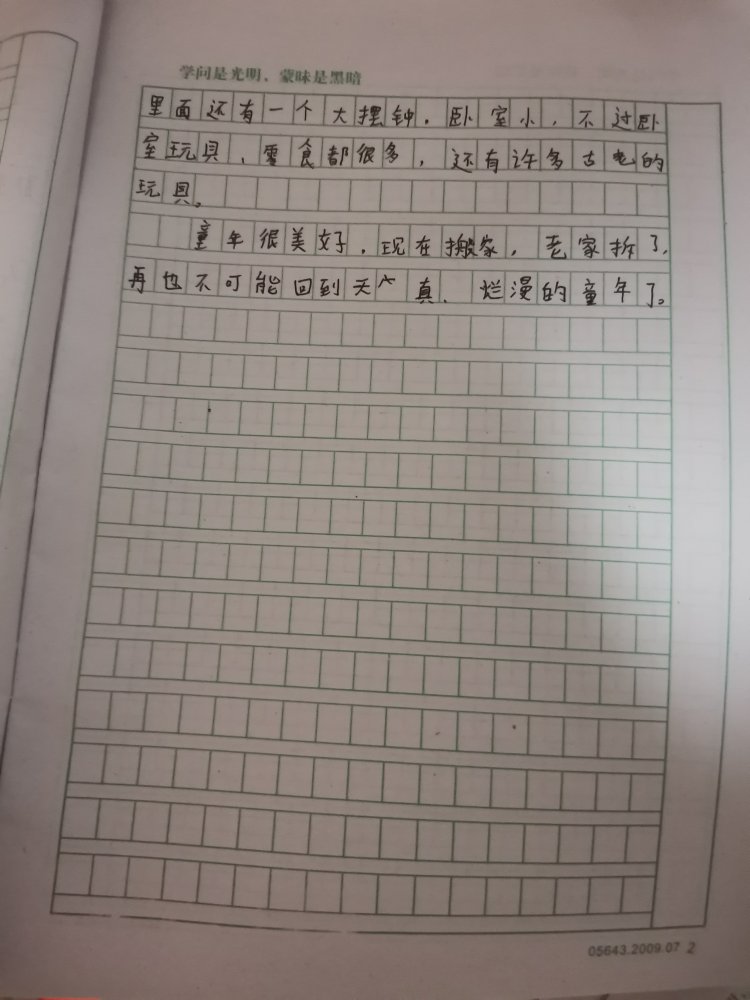 学问是光明，蒙昧是黑暗
里面还有一个大摆钟。卧室小，不过卧
室玩具、零食都很多，还有许多古老的
玩具。
童年很美好，现在搬家，老家拆了，
再也不可能回到天真、烂漫的童年了。
05643.2009.07 2